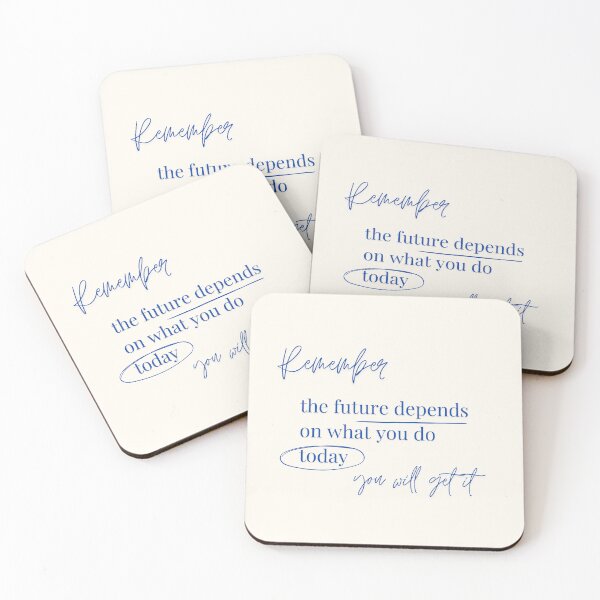 Remember
the future depends
do
Remember
the future depends
on what you do
today
Remember
the future depends
on what you do
today
you will
Remember
the future depends
on what you do
today
you will get it